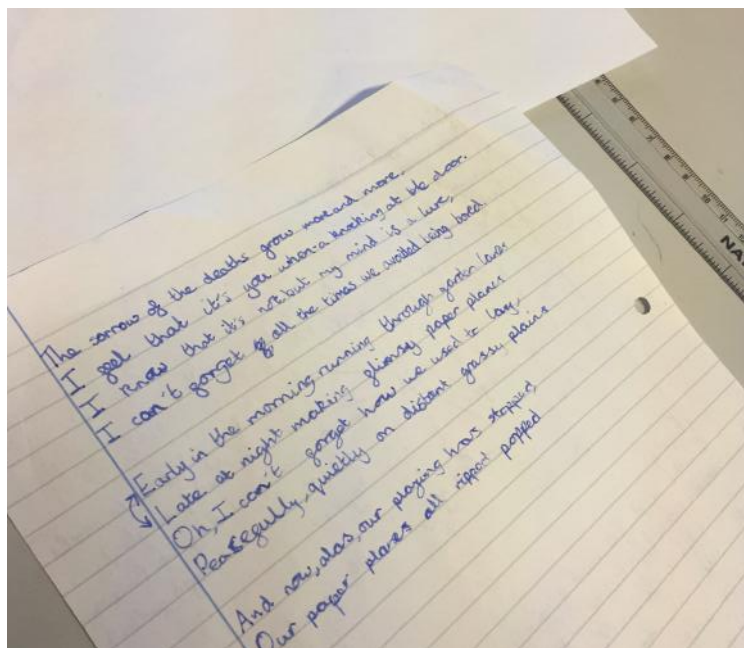 The sorrow of the deaths grow more and more.
I feel that it's you when a knocking at the door.
I know that it's not but my mind is a lure,
I can't forget all the times we avoided being bored.
Early in the morning, running through garden lanes
Late at night making flimsy paper planes
Oh, I can't forget how we used to lay,
Peacefully, quietly on distant grassy plains
And now, alas, our playing has stopped,
Our paper planes all ripped popped
NA